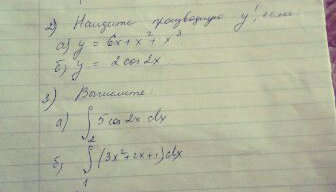 2) Найдите производную y', если
а) y = 6x + x² + x³
б) y = 2 cos 2x
3) Вычислите
а) ∫₂ 5 cos 2x dx
б) ∫₁ (3x² + 2x + 1) dx